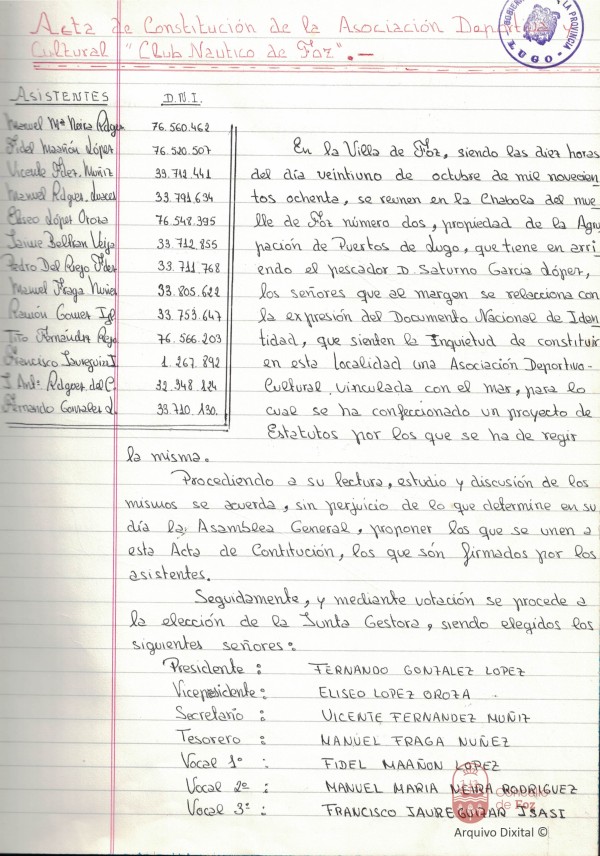 Acta de Constitución de la Asociación Deportiva y
Cultural "Club Nautico de Foz".-
GOBIERNO
LA PROVINCIA
LUGO
ASISTENTES D.N.I.
Manuel Mª Neira Rdguez 76.560.462
Fidel Maañón López 76.520.507
Vicente Fdez. Muñiz 33.741.441
Manuel Rdgues. 33.791.694
Eliseo López Oroza 76.548.395
Jaime Beltran Veija 33.712.855
Pedro Del Riego Fdez 33.711.768
Manuel Fraga Nuñez 33.805.622
Ramón Gomez Igl 33.753.647
Tito Fernández Rego 76.566.203
Francisco Jaureguizar I. 1.267.892
J. Antº. Rdgoez. del C. 32.348.124
Fernando Gonzalez L. 33.710.130.
En la Villa de Foz, siendo las diez horas
del día veintiuno de octubre de mil novecien
tos ochenta, se reunen en la Chabola del mue
lle de Foz número dos, propiedad de la Agru
pación de Puertos de Lugo, que tiene en arri
endo el pescador D. Saturno Garcia López,
los señores que al margen se relacciona con
la expresión del Documento Nacional de Iden
tidad, que sienten la Inquietud de constituir
en esta localidad una Asociación Deportiva-
Cultural, vinculada con el mar, para lo
cual se ha confeccionado un proyecto de
Estatutos por los que se ha de regir
la misma.
Procediendo a su lectura, estudio y discusión de los
mismos se acuerda, sin perjuicio de lo que determine en su
día la Asamblea General, proponer los que se unen a
esta Acta de Contitución, los que són firmados por los
asistentes.
Seguidamente, y mediante votación se procede a
la elección de la Junta Gestora, siendo elegidos los
siguientes señores:
Presidente : FERNANDO GONZALEZ LOPEZ
Vicepresidente : ELISEO LOPEZ OROZA
Secretario : VICENTE FERNANDEZ MUÑIZ
Tesorero : MANUEL FRAGA NUÑEZ
Vocal 1º : FIDEL MAAÑON LOPEZ
Vocal 2º : MANUEL MARIA NEIRA RODRIGUEZ
Vocal 3º : FRANCISCO JAUREGUIZAR ISASI
Concello
de Foz
Arquivo Dixital ©